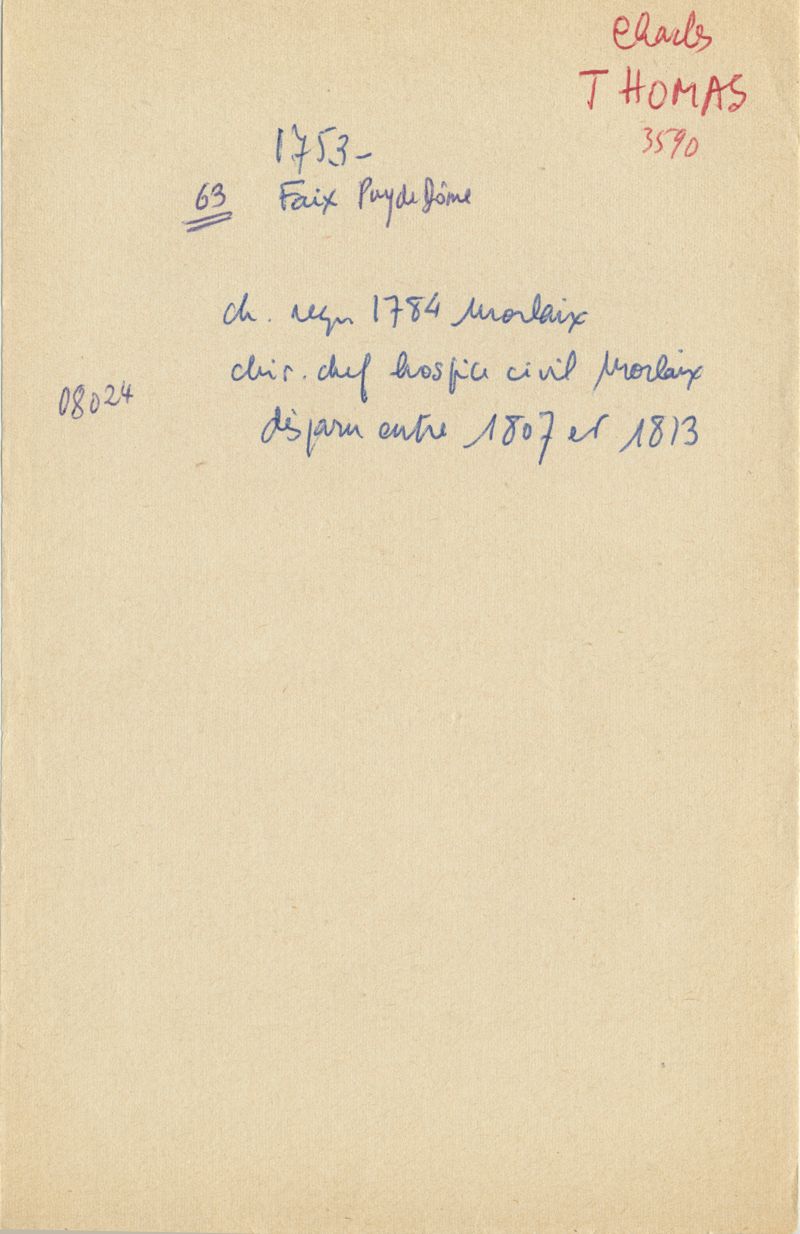 Charles
THOMAS
3590
1753-
63 Faix Puy de Dôme
ch. reçu 1784 Morlaix
chir. chef hospice civil Morlaix
08024
disparu entre 1807 et 1813